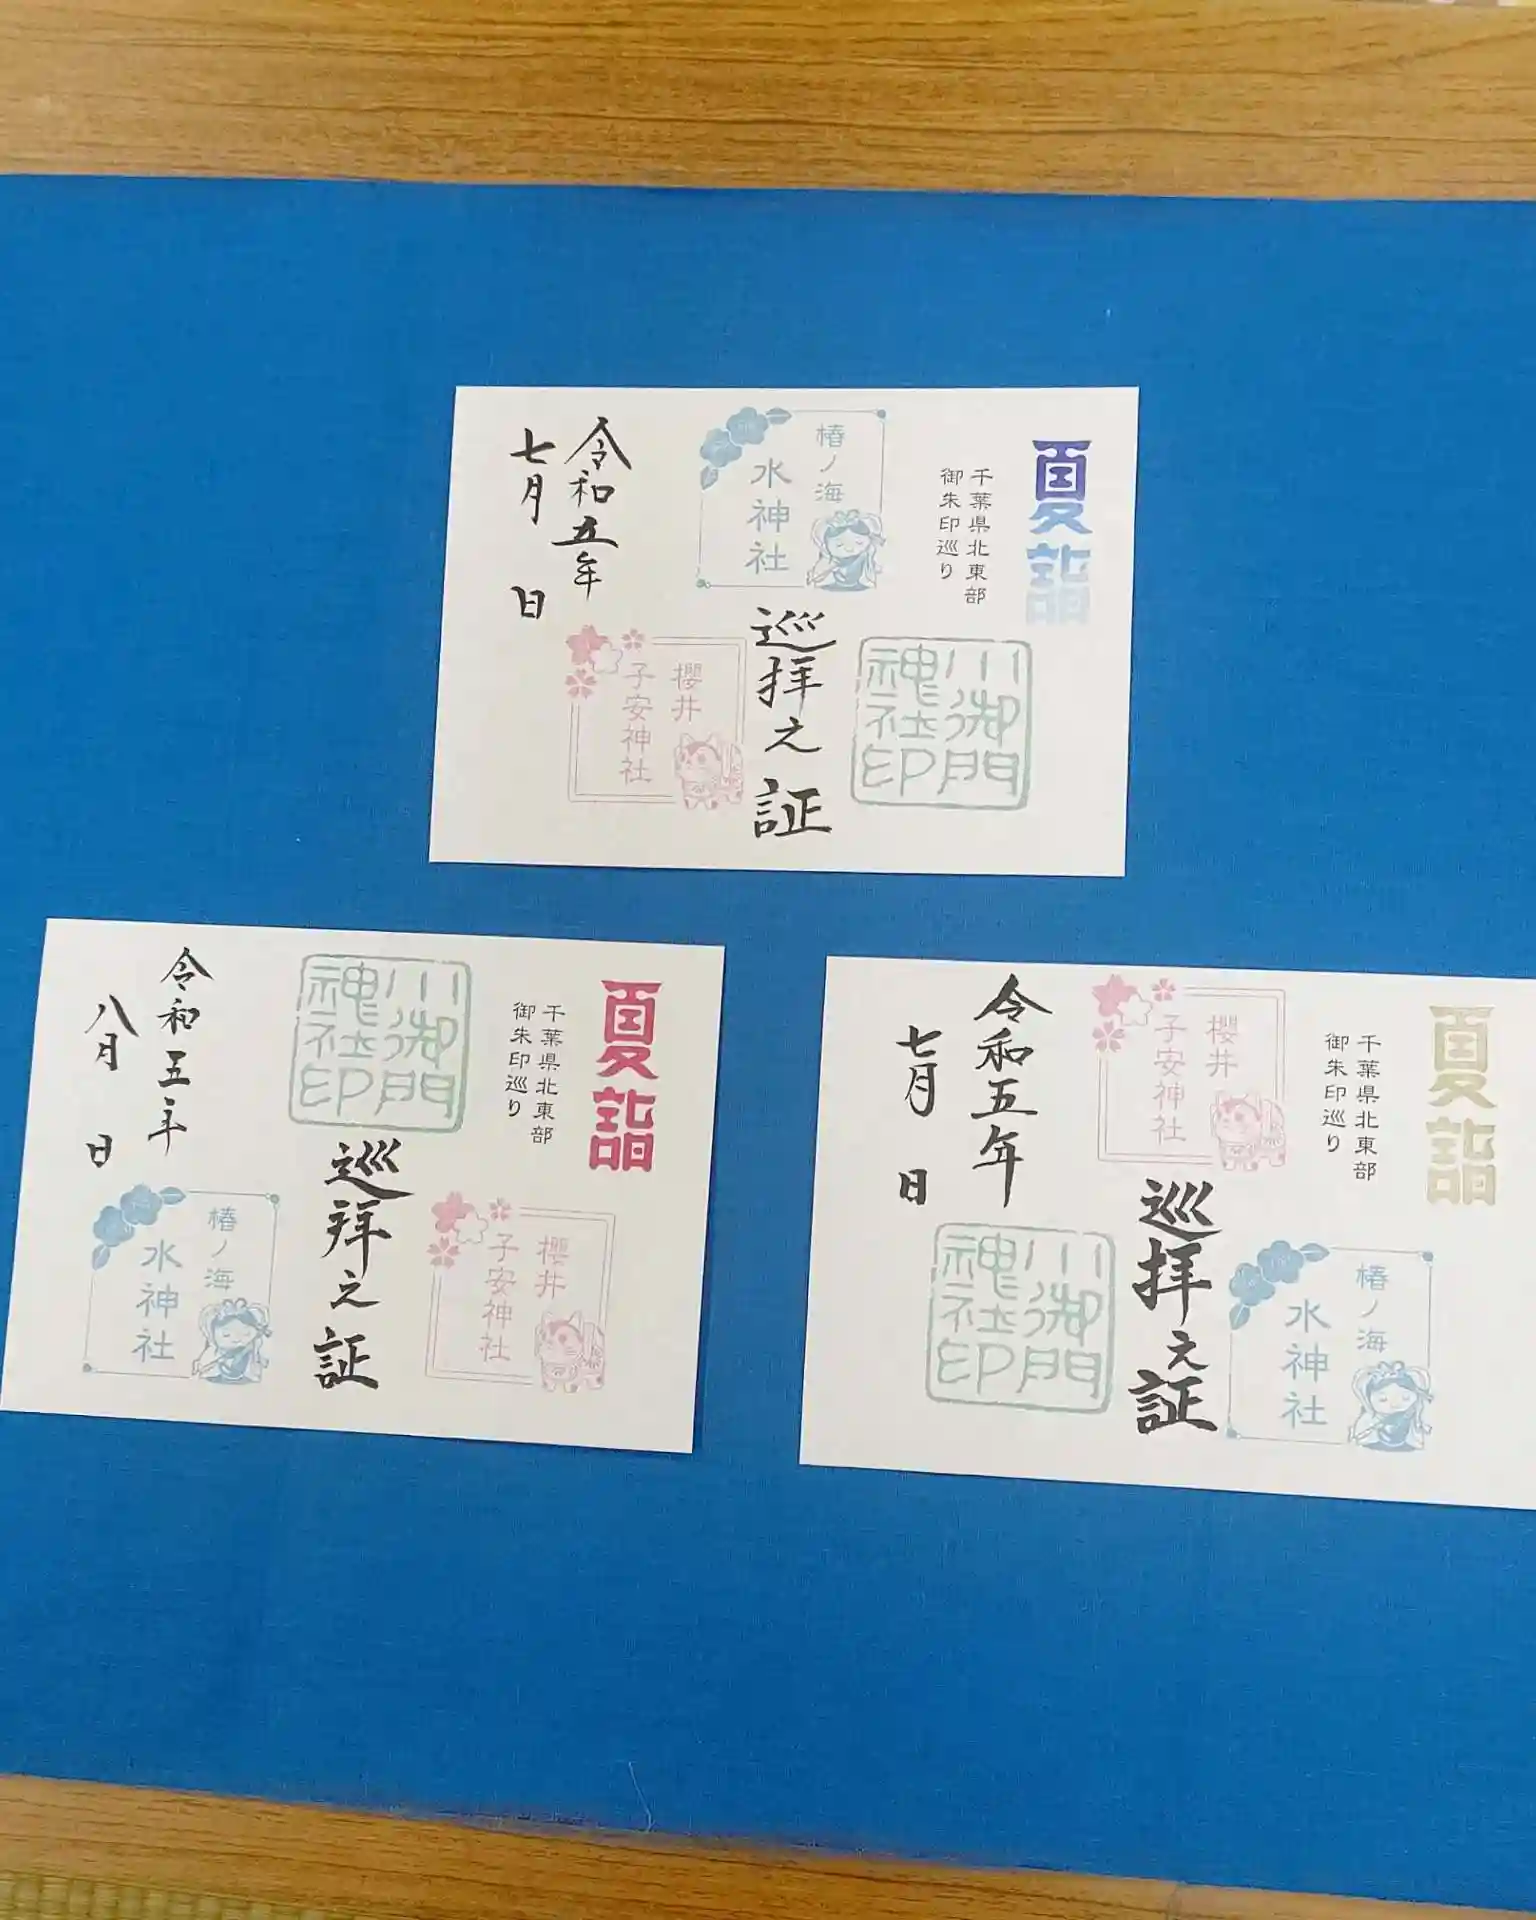 夏詣
千葉県北東部
御朱印巡り
椿ノ海
水神社
川御門
神社印
巡拝之証
櫻井
子安神社
令和五年
七月 日
夏詣
千葉県北東部
御朱印巡り
川御門
神社印
櫻井
子安神社
巡拝之証
椿ノ海
水神社
令和五年
八月 日
夏詣
千葉県北東部
御朱印巡り
櫻井
子安神社
椿ノ海
水神社
巡拝之証
川御門
神社印
令和五年
七月 日